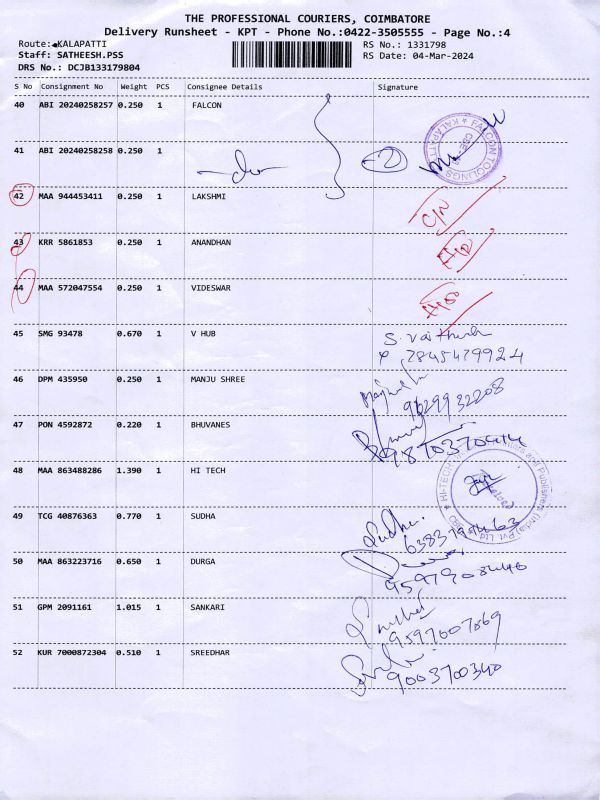 THE PROFESSIONAL COURIERS, COIMBATORE
Delivery Runsheet - KPT - Phone No.:0422-3505555 - Page No.:4
Route: KALAPATTI RS No.: 1331798
Staff: SATHEESH.PSS RS Date: 04-Mar-2024
DRS No.: DCJB133179804
S No Consignment No Weight PCS Consignee Details Signature
40 ABI 20240258257 0.250 1 FALCON
FALCON TOOLINGS * KALAPATTI *
41 ABI 20240258258 0.250 1
-do- 2
42 MAA 944453411 0.250 1 LAKSHMI
C/N
43 KRR 5861853 0.250 1 ANANDHAN
44 MAA 572047554 0.250 1 VIDESWAR
45 SMG 93478 0.670 1 V HUB
S. Vaithi
7845479924
46 DPM 435950 0.250 1 MANJU SHREE
9629932208
47 PON 4592872 0.220 1 BHUVANES
48 MAA 863488286 1.390 1 HI TECH
49 TCG 40876363 0.770 1 SUDHA
Sudha.
50 MAA 863223716 0.650 1 DURGA
51 GPM 2091161 1.015 1 SANKARI
9597007069
52 KUR 7000872304 0.510 1 SREEDHAR
9003700340